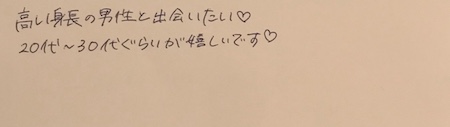 高い身長の男性と出会いたい♡
20代～30代ぐらいが嬉しいです♡